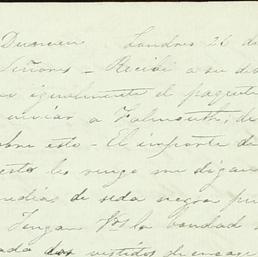 Duncan Londres 26 de
Señores – Recibí a su de
igualmente el paquete
enviar a Falmouth, de
sobre esto – El importe de
esto les ruego me digan
medias de seda negra pu
Tengan Vds la bondad
vestidos de encage